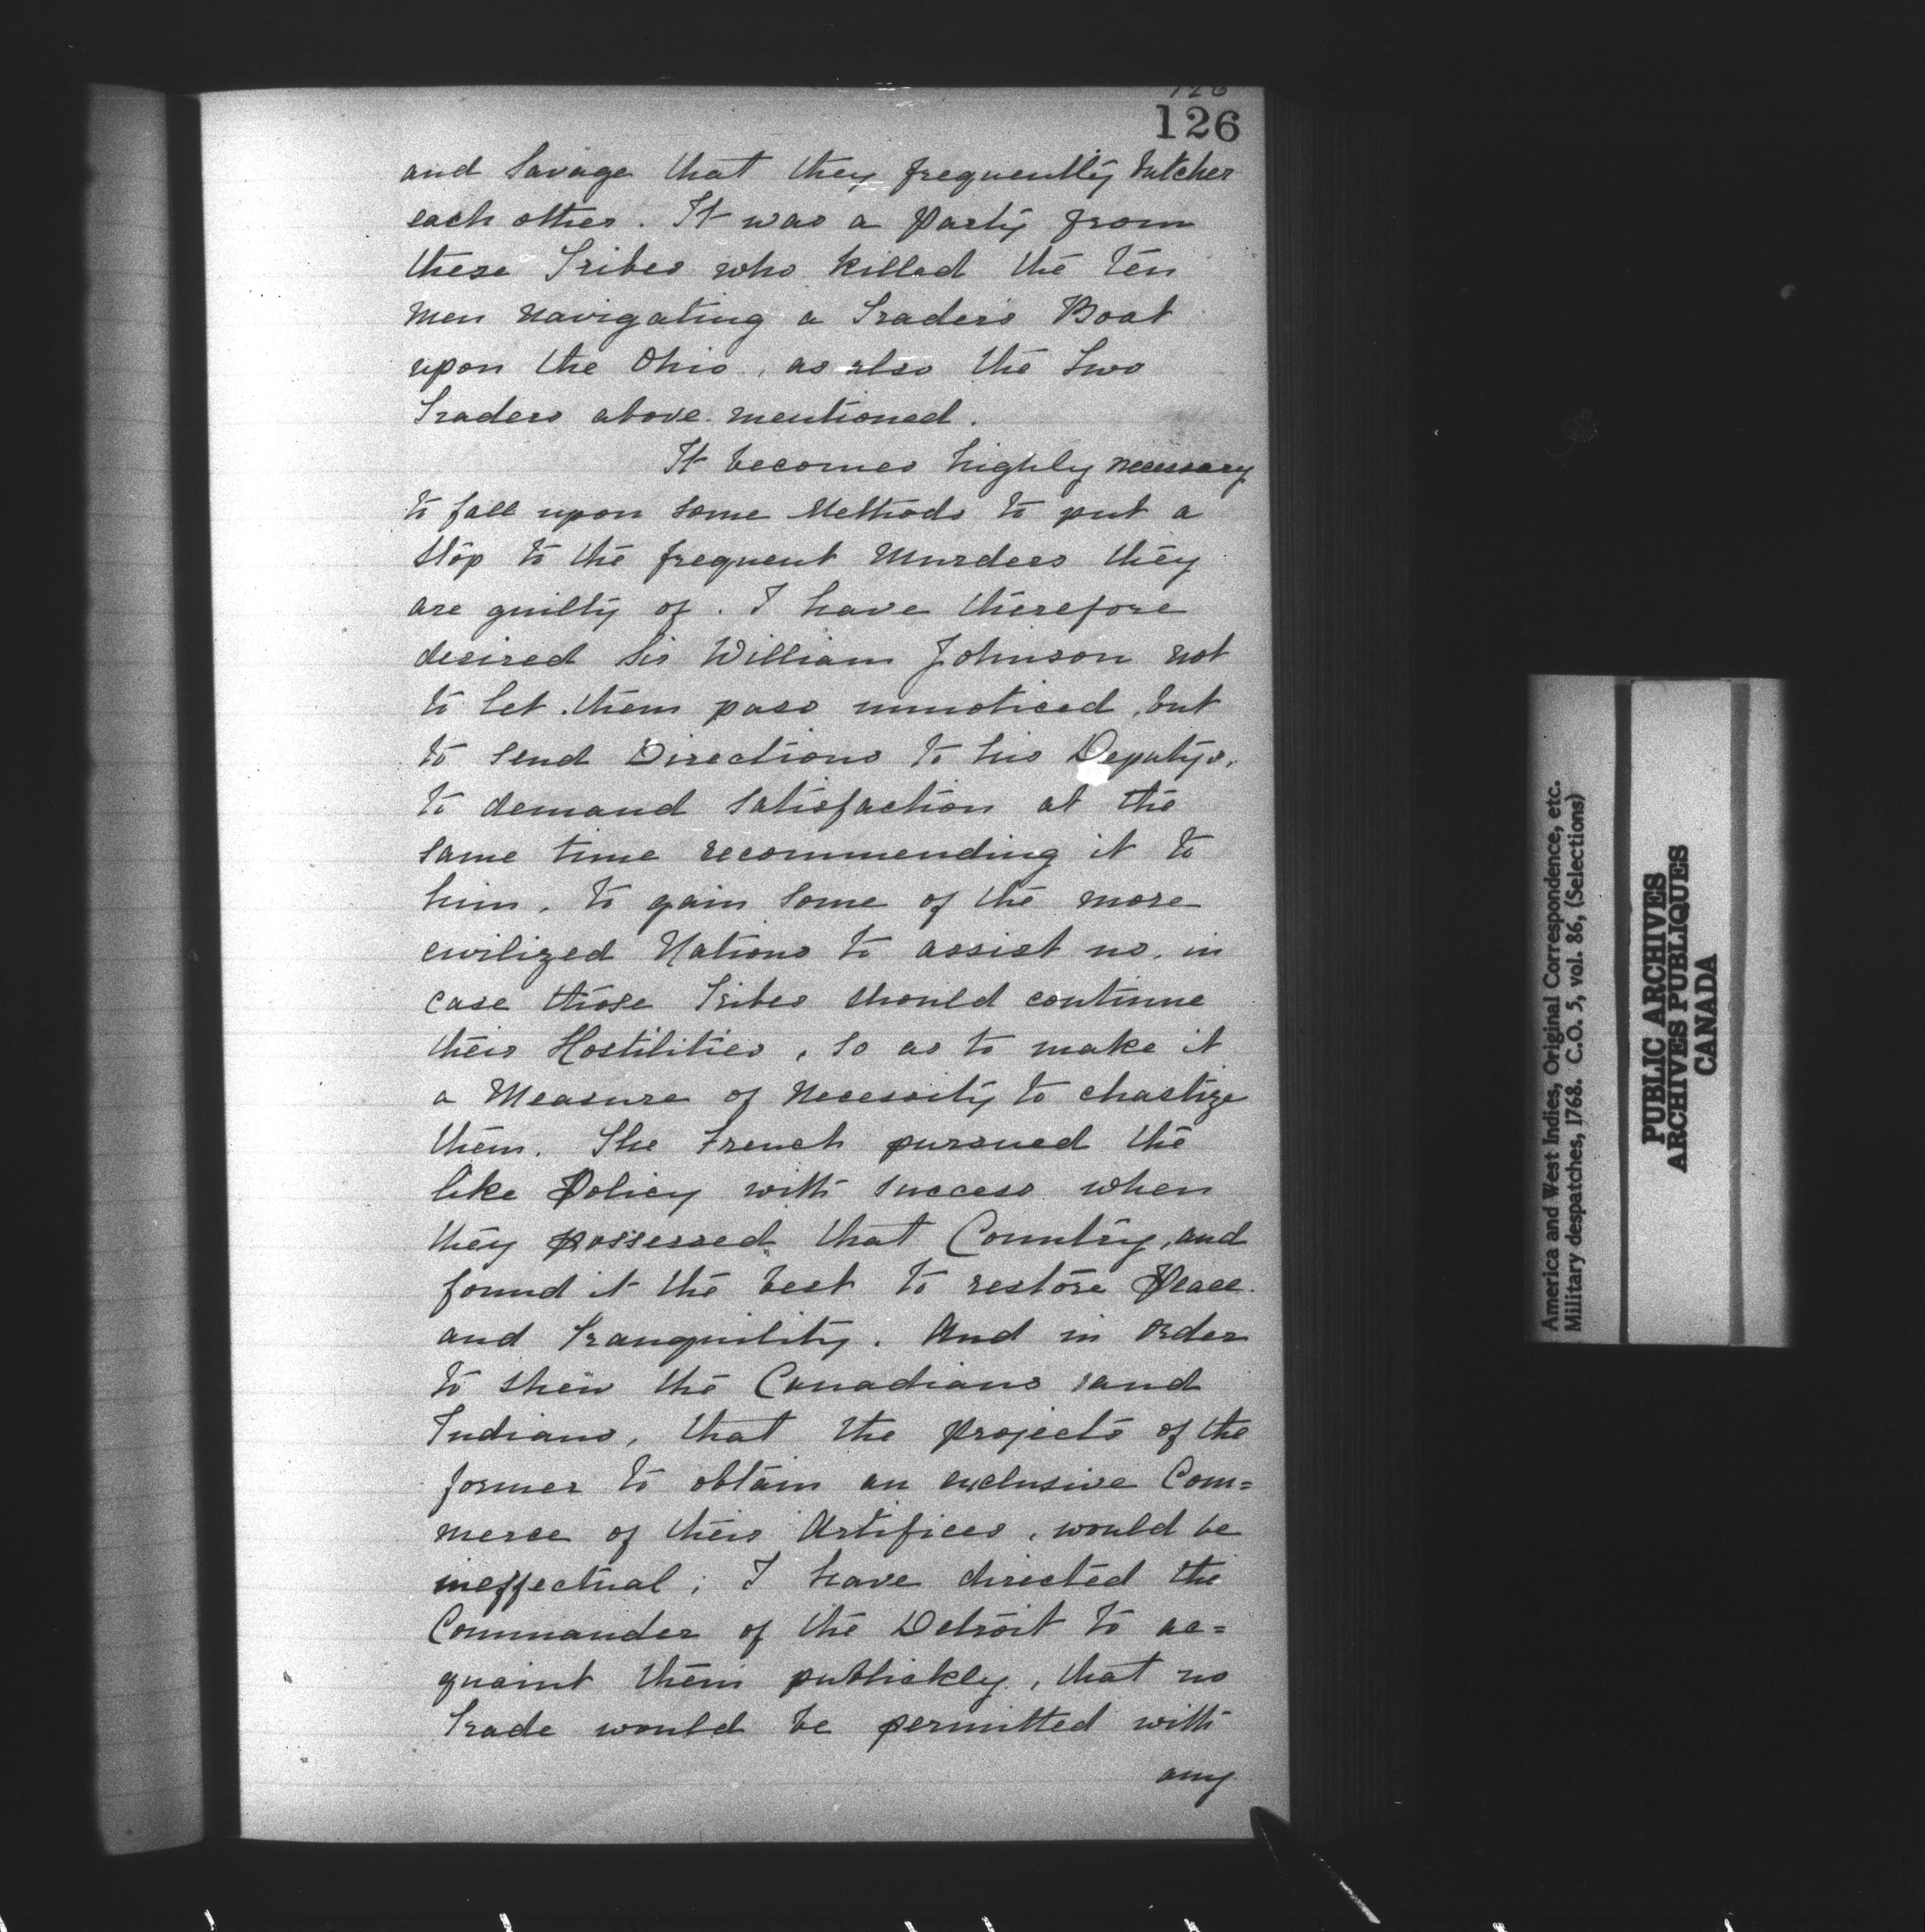 126
126
and Savage that they frequently butcher
each other. It was a Party from
these Tribes who killed the ten
Men navigating a Trader's Boat
upon the Ohio, as also the Two
Traders above mentioned.
It becomes highly necessary
to fall upon some Methods to put a
Stop to the frequent Murders they
are guilty of. I have therefore
desired Sir William Johnson not
to let them pass unnoticed, but
to send Directions to his Deputys,
to demand Satisfaction at the
same time recommending it to
him, to gain some of the more
civilized Nations to assist us, in
case those Tribes should continue
their Hostilities, so as to make it
a Measure of Necessity to chastize
them. The French pursued the
like Policy with success when
they possessed that Country, and
found it the best to restore Peace
and Tranquility. And in Order
to shew the Canadians and
Indians, that the Projects of the
former to obtain an exclusive Com=
merce of their Artifices, would be
ineffectual; I have directed the
Commander of the Detroit to ac=
quaint them publickly, that no
Trade would be permitted with
any
America and West Indies, Original Correspondence, etc.
Military despatches, 1768. C.O. 5, vol. 86, (Selections)
PUBLIC ARCHIVES
ARCHIVES PUBLIQUES
CANADA